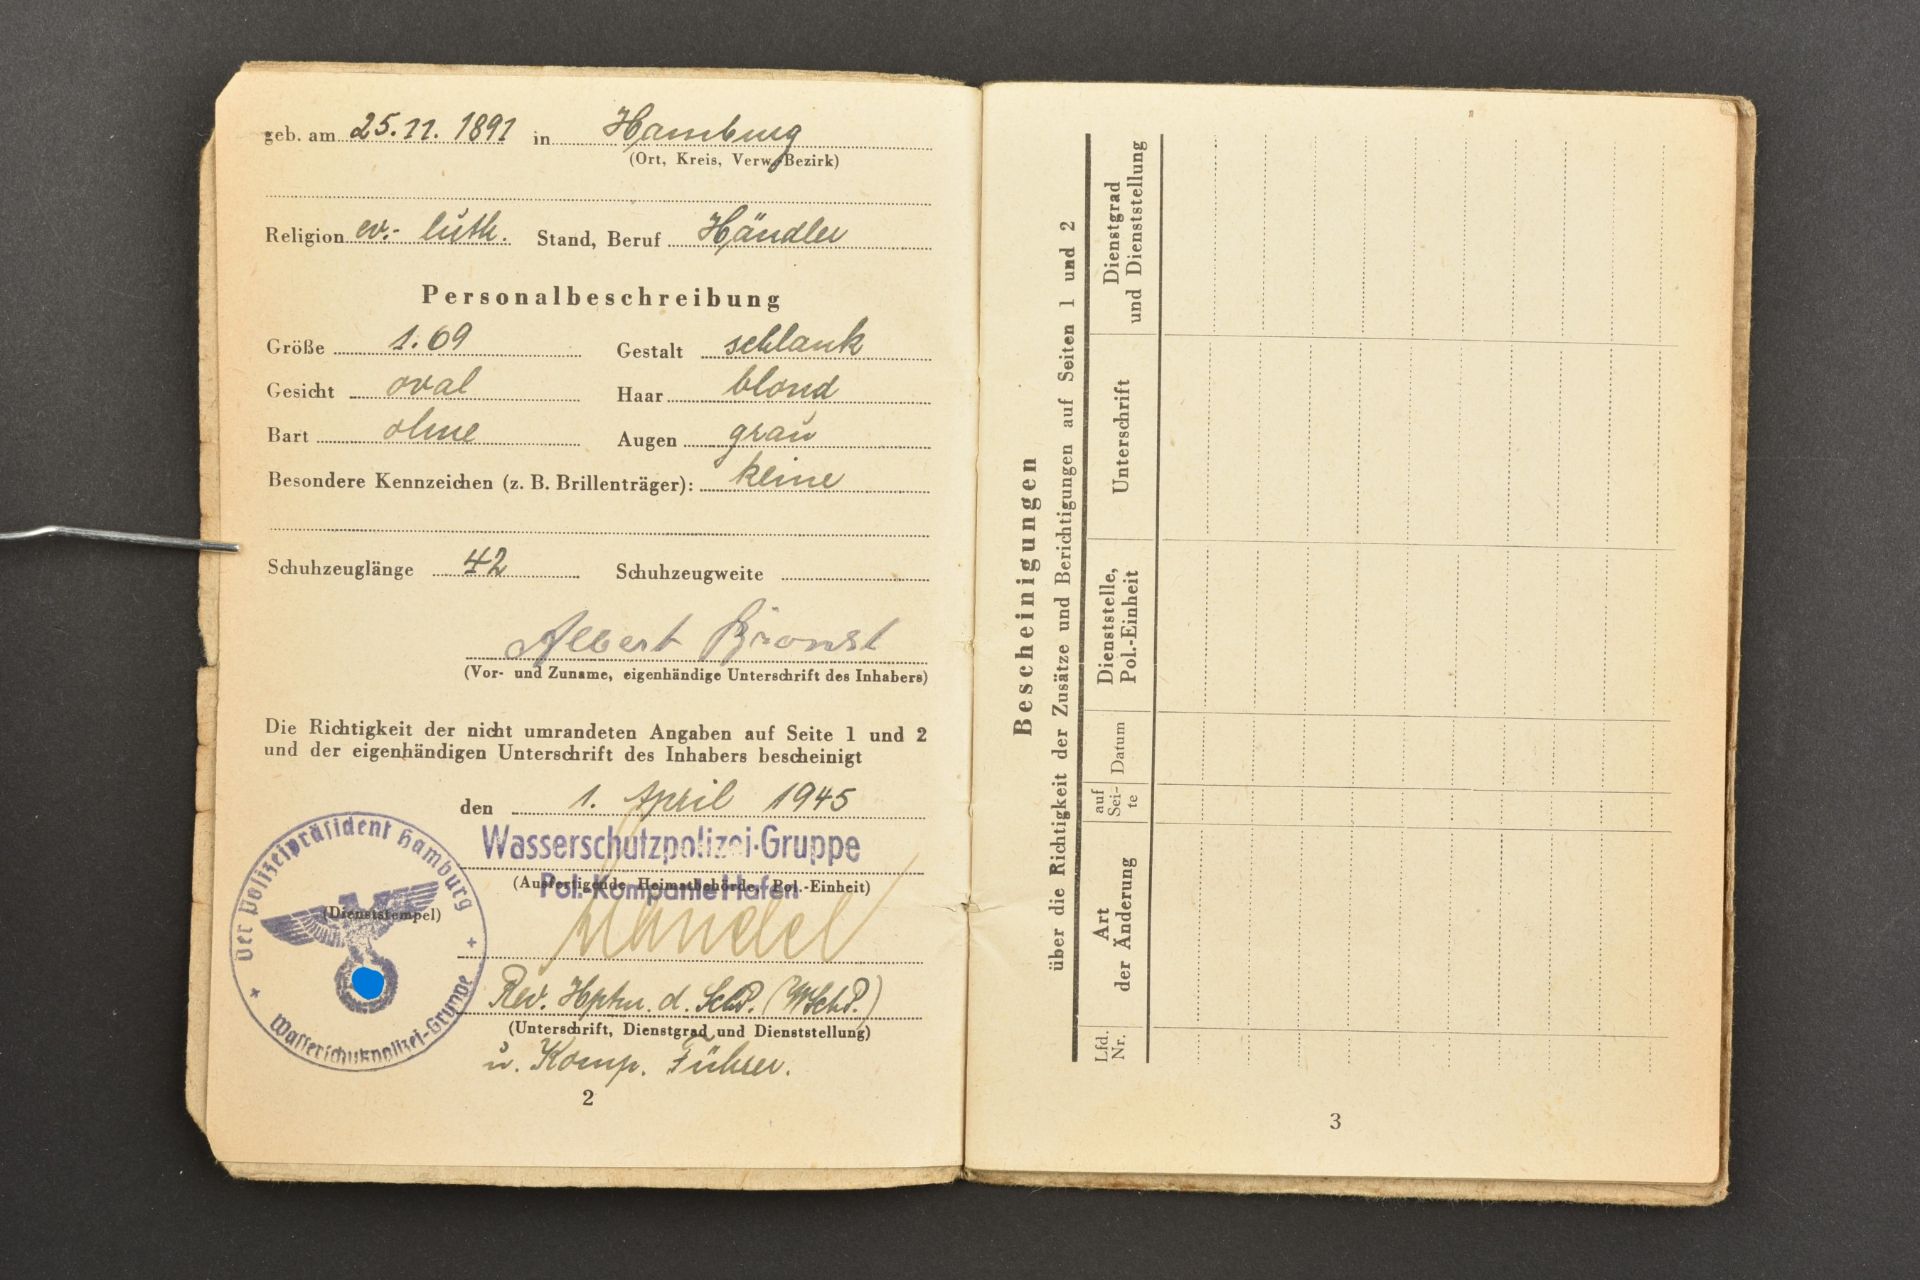 geb. am 25.11.1891 in Hamburg
(Ort, Kreis, Verw.-Bezirk)
Religion ev.- luth. Stand, Beruf Händler
Personalbeschreibung
Größe 1.69 Gestalt schlank
Gesicht oval Haar blond
Bart ohne Augen grau
Besondere Kennzeichen (z. B. Brillenträger): keine
Schuhzeuglänge 42 Schuhzeugweite
Albert
(Vor- und Zuname, eigenhändige Unterschrift des Inhabers)
Die Richtigkeit der nicht umrandeten Angaben auf Seite 1 und 2
und der eigenhändigen Unterschrift des Inhabers bescheinigt
den 1. April 1945
Wasserschutzpolizei-Gruppe
(Ausfertigende Heimatbehörde, Pol.-Einheit)
Pol.-Kompanie Hafen
(Dienststempel)
Der Polizeipräsident Hamburg
Wasserschutzpolizei-Gruppe
Rev. Hptm. d. SchP. (WSchP.)
(Unterschrift, Dienstgrad und Dienststellung)
u. Komp. Führer.
2
Bescheinigungen
über die Richtigkeit der Zusätze und Berichtigungen auf Seiten 1 und 2
Lfd. Nr.
Art der Änderung
auf Sei-te
Datum
Dienststelle, Pol.-Einheit
Unterschrift
Dienstgrad und Dienststellung
3